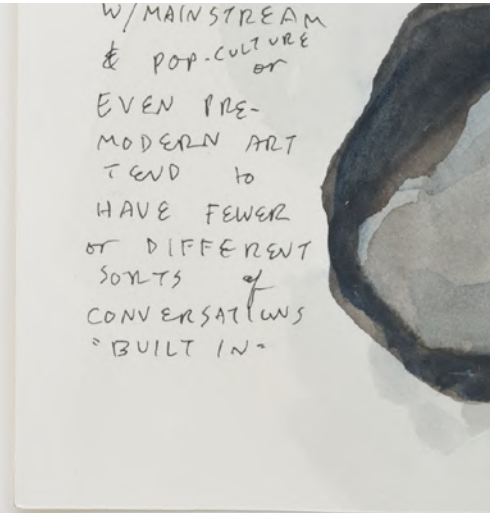 W/MAINSTREAM
& POP-CULTURE
or
EVEN PRE-
MODERN ART
TEND to
HAVE FEWER
or DIFFERENT
SORTS of
CONVERSATIONS
"BUILT IN"